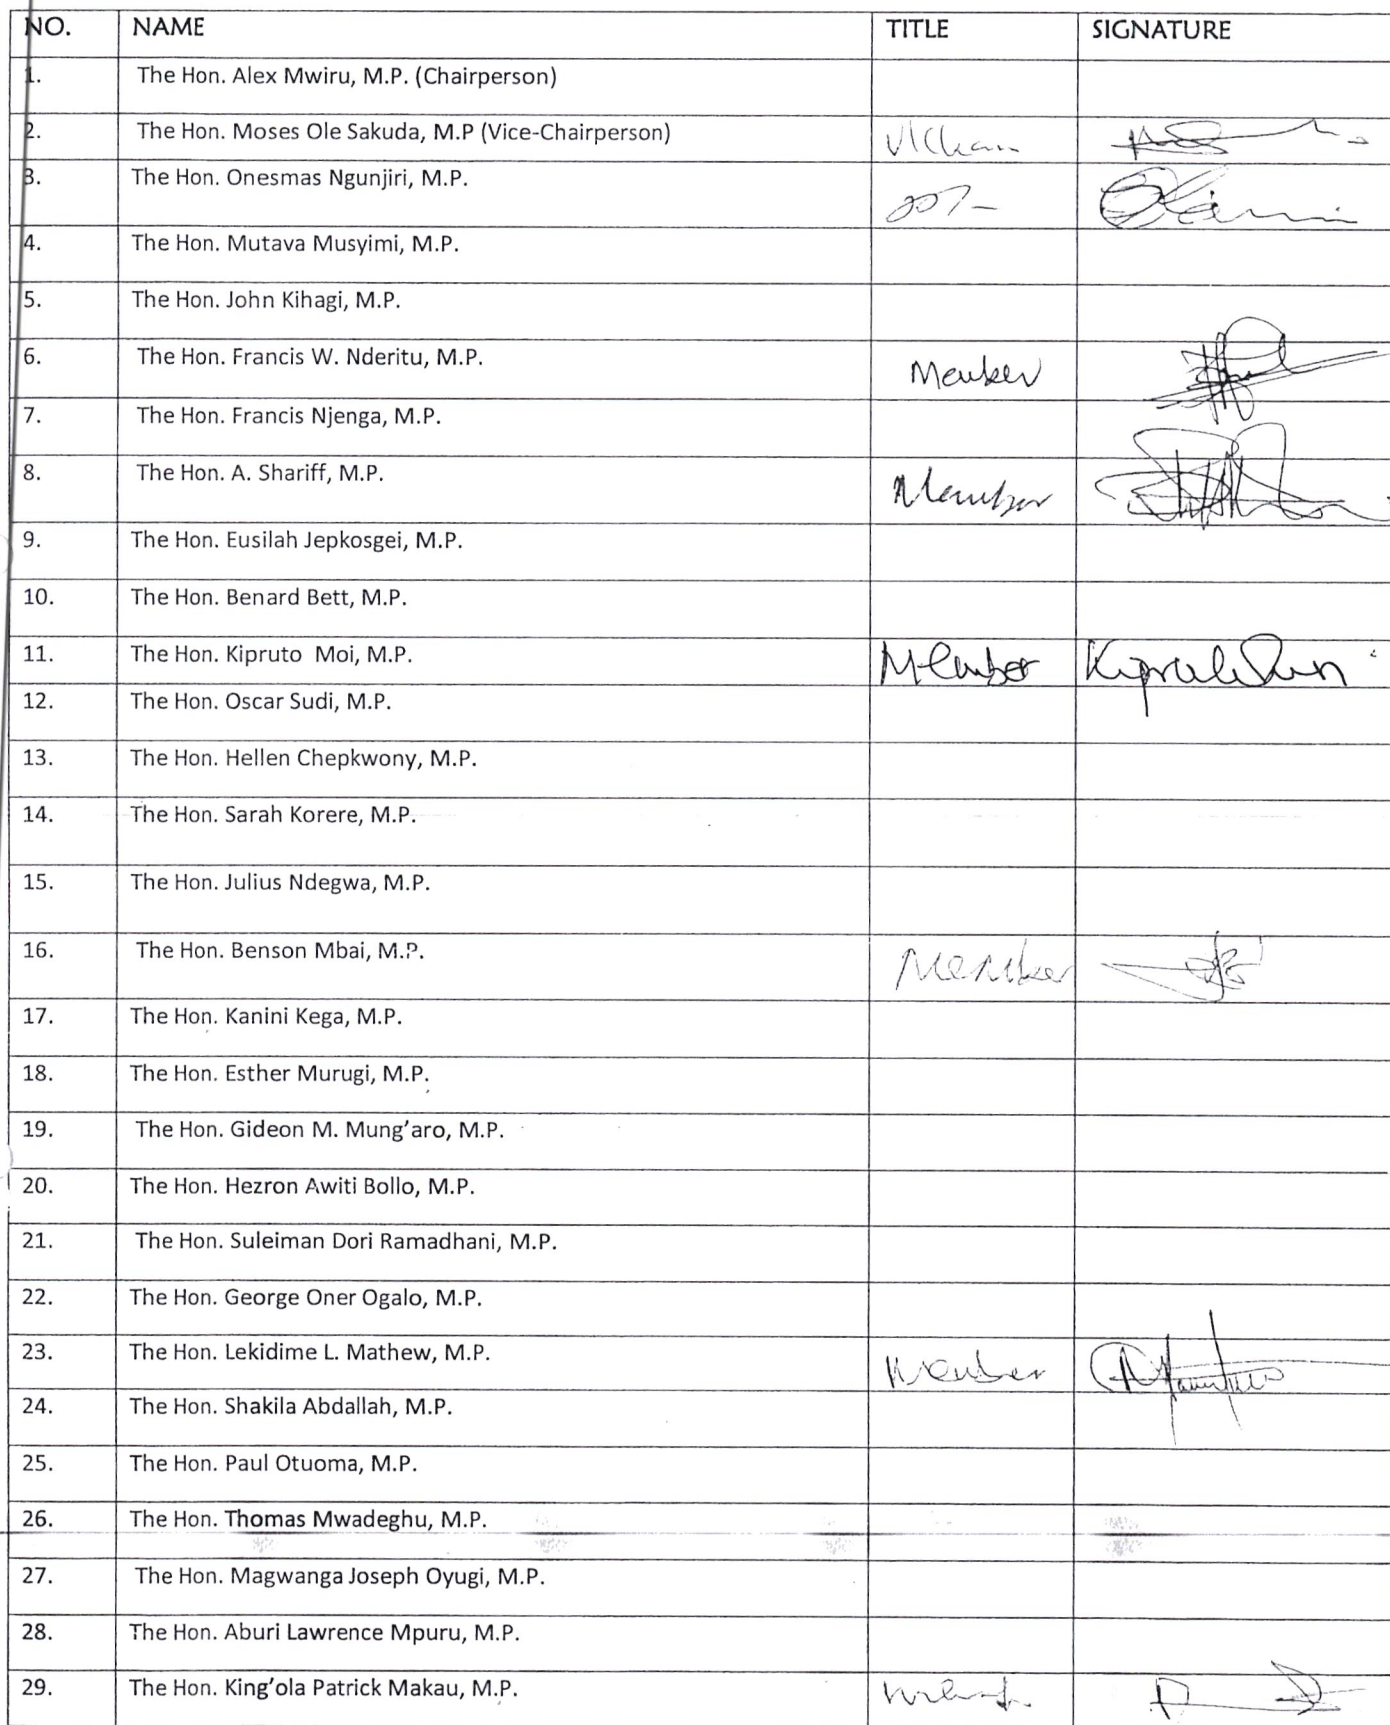 NO. NAME TITLE SIGNATURE
1. The Hon. Alex Mwiru, M.P. (Chairperson)
2. The Hon. Moses Ole Sakuda, M.P (Vice-Chairperson)
3. The Hon. Onesmas Ngunjiri, M.P.
4. The Hon. Mutava Musyimi, M.P.
5. The Hon. John Kihagi, M.P.
6. The Hon. Francis W. Nderitu, M.P. Member
7. The Hon. Francis Njenga, M.P.
8. The Hon. A. Shariff, M.P. Member
9. The Hon. Eusilah Jepkosgei, M.P.
10. The Hon. Benard Bett, M.P.
11. The Hon. Kipruto Moi, M.P. Member
12. The Hon. Oscar Sudi, M.P.
13. The Hon. Hellen Chepkwony, M.P.
14. The Hon. Sarah Korere, M.P.
15. The Hon. Julius Ndegwa, M.P.
16. The Hon. Benson Mbai, M.P. Member
17. The Hon. Kanini Kega, M.P.
18. The Hon. Esther Murugi, M.P.
19. The Hon. Gideon M. Mung'aro, M.P.
20. The Hon. Hezron Awiti Bollo, M.P.
21. The Hon. Suleiman Dori Ramadhani, M.P.
22. The Hon. George Oner Ogalo, M.P.
23. The Hon. Lekidime L. Mathew, M.P. Member
24. The Hon. Shakila Abdallah, M.P.
25. The Hon. Paul Otuoma, M.P.
26. The Hon. Thomas Mwadeghu, M.P.
27. The Hon. Magwanga Joseph Oyugi, M.P.
28. The Hon. Aburi Lawrence Mpuru, M.P.
29. The Hon. King'ola Patrick Makau, M.P.